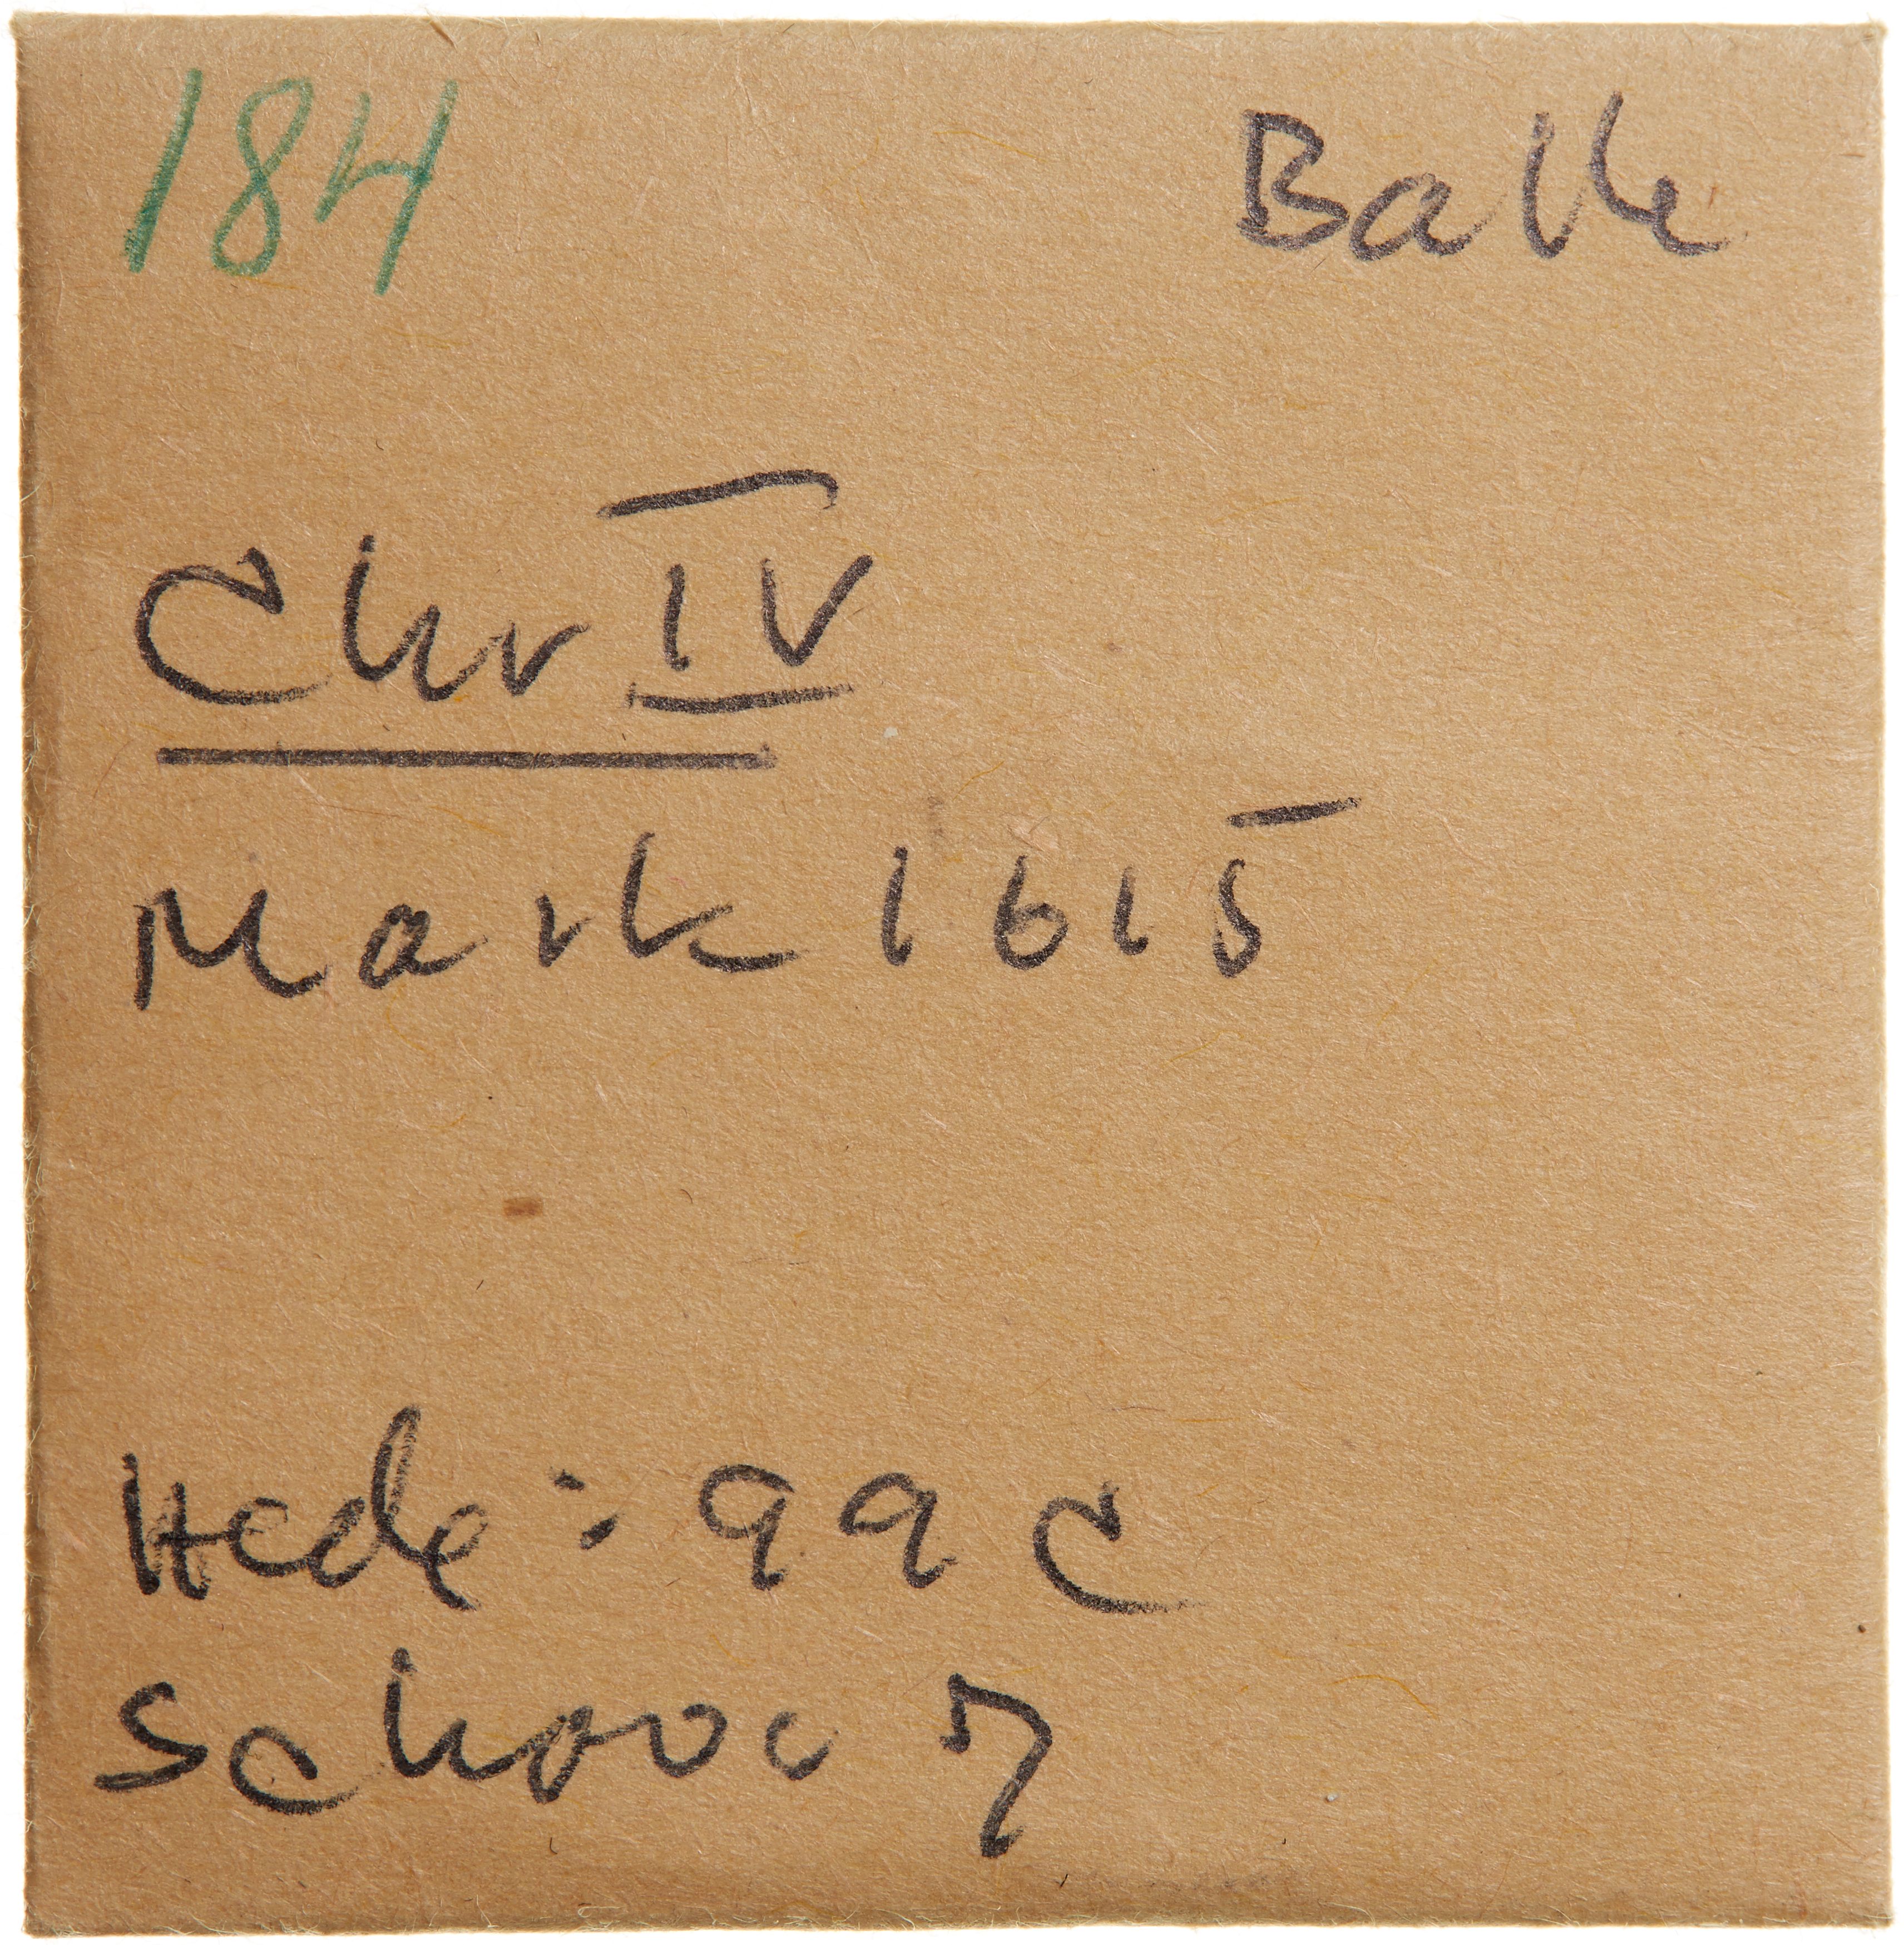 184 Balle
Chr IV
Mark 1615
Hede: 99 C
Schoou 7